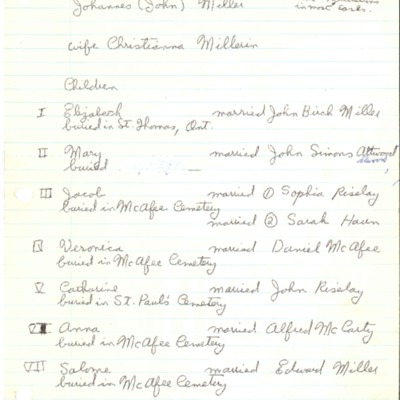 Johannes (John) Miller
in most cases.
wife Christianna Millerin
Children
I Elizabeth married John Birch Miller
buried in St. Thomas, Ont.
II Mary married John Simons Attwood
buried
III Jacob married ① Sophia Riselay
buried in McAfee Cemetery
married ② Sarah Haun
IV Veronica married Daniel McAfee
buried in McAfee Cemetery
V Catharine married John Riselay
buried in St. Paul's Cemetery
VI Anna married Alfred McCarty
buried in McAfee Cemetery
VII Salome married Edward Miller
buried in McAfee Cemetery